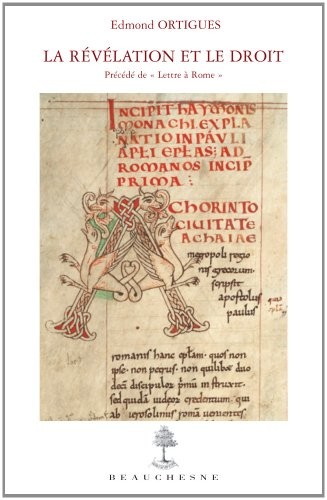 Edmond ORTIGUES
LA RÉVÉLATION ET LE DROIT
Précédé de « Lettre à Rome »
INCIPIT HAYMONIS
MONACHI EXPLA
NATIO IN PAULI
APLI EPLAS: AD
ROMANOS INCIP
PRIMA:
A CHORINTO
CIUITATE
ACHAIAE
megropoli regio
nis grecorum
scripsit
apostolus
paulus
romanis hanc eplam. quos non
ipse. non petrus. non quilibet duo
decim discipulor primu instruxit.
sed quidā iudeor credentium. qui
ab ierosolimis romam uenientes
BEAUCHESNE